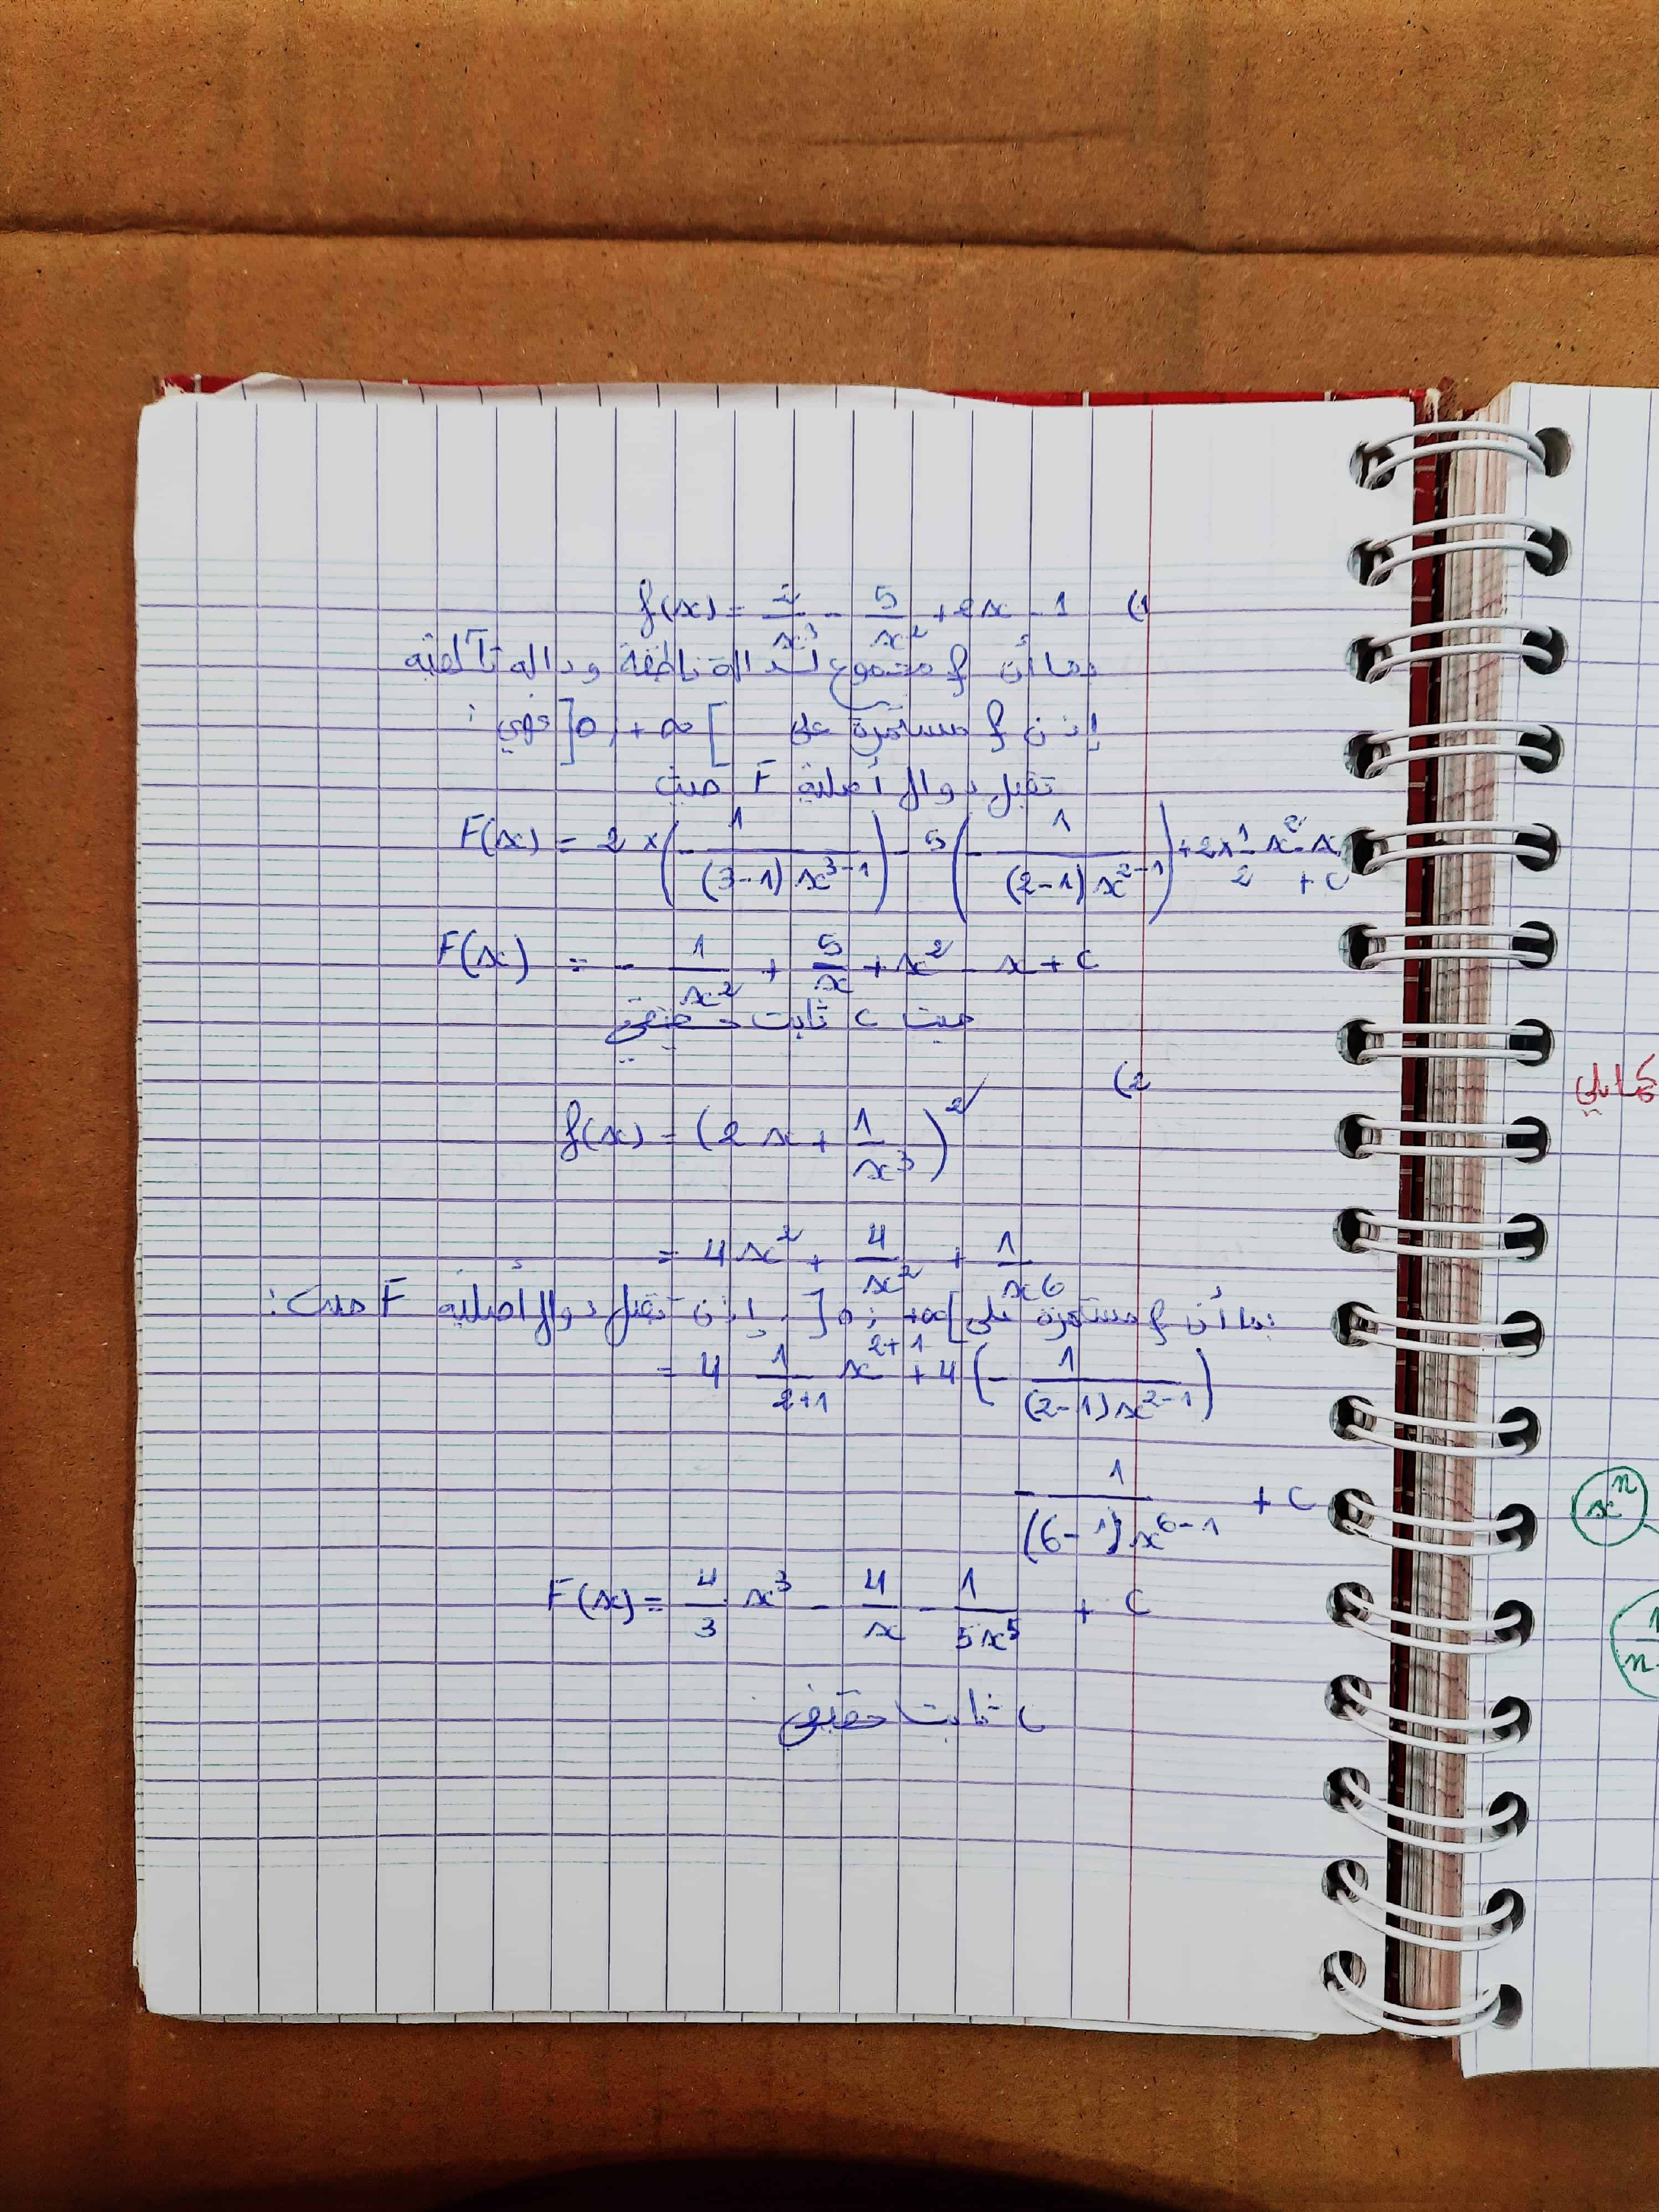 1) f(x) = 2/x³ - 5/x² + 2x - 1
بما أن f مجموع لدالة ناطقة ودالة تآلفية
إذن f مستمرة على ]0, +∞[ فهي :
تقبل دوال أصلية F حيث
F(x) = 2 × (- 1/((3-1) x³⁻¹)) - 5 (- 1/((2-1) x²⁻¹)) + 2 × 1/2 x² - x + c
F(x) = - 1/x² + 5/x + x² - x + c
حيث c ثابت حقيقي
2)
f(x) = (2x + 1/x³)²
= 4x² + 4/x² + 1/x⁶
بما أن f مستمرة على ]0 ; +∞[ إذن تقبل دوال أصلية F حيث :
= 4 1/(2+1) x²⁺¹ + 4 (- 1/((2-1) x²⁻¹))
- 1/((6-1) x⁶⁻¹) + c
F(x) = 4/3 x³ - 4/x - 1/(5x⁵) + c
c ثابت حقيقي
xⁿ